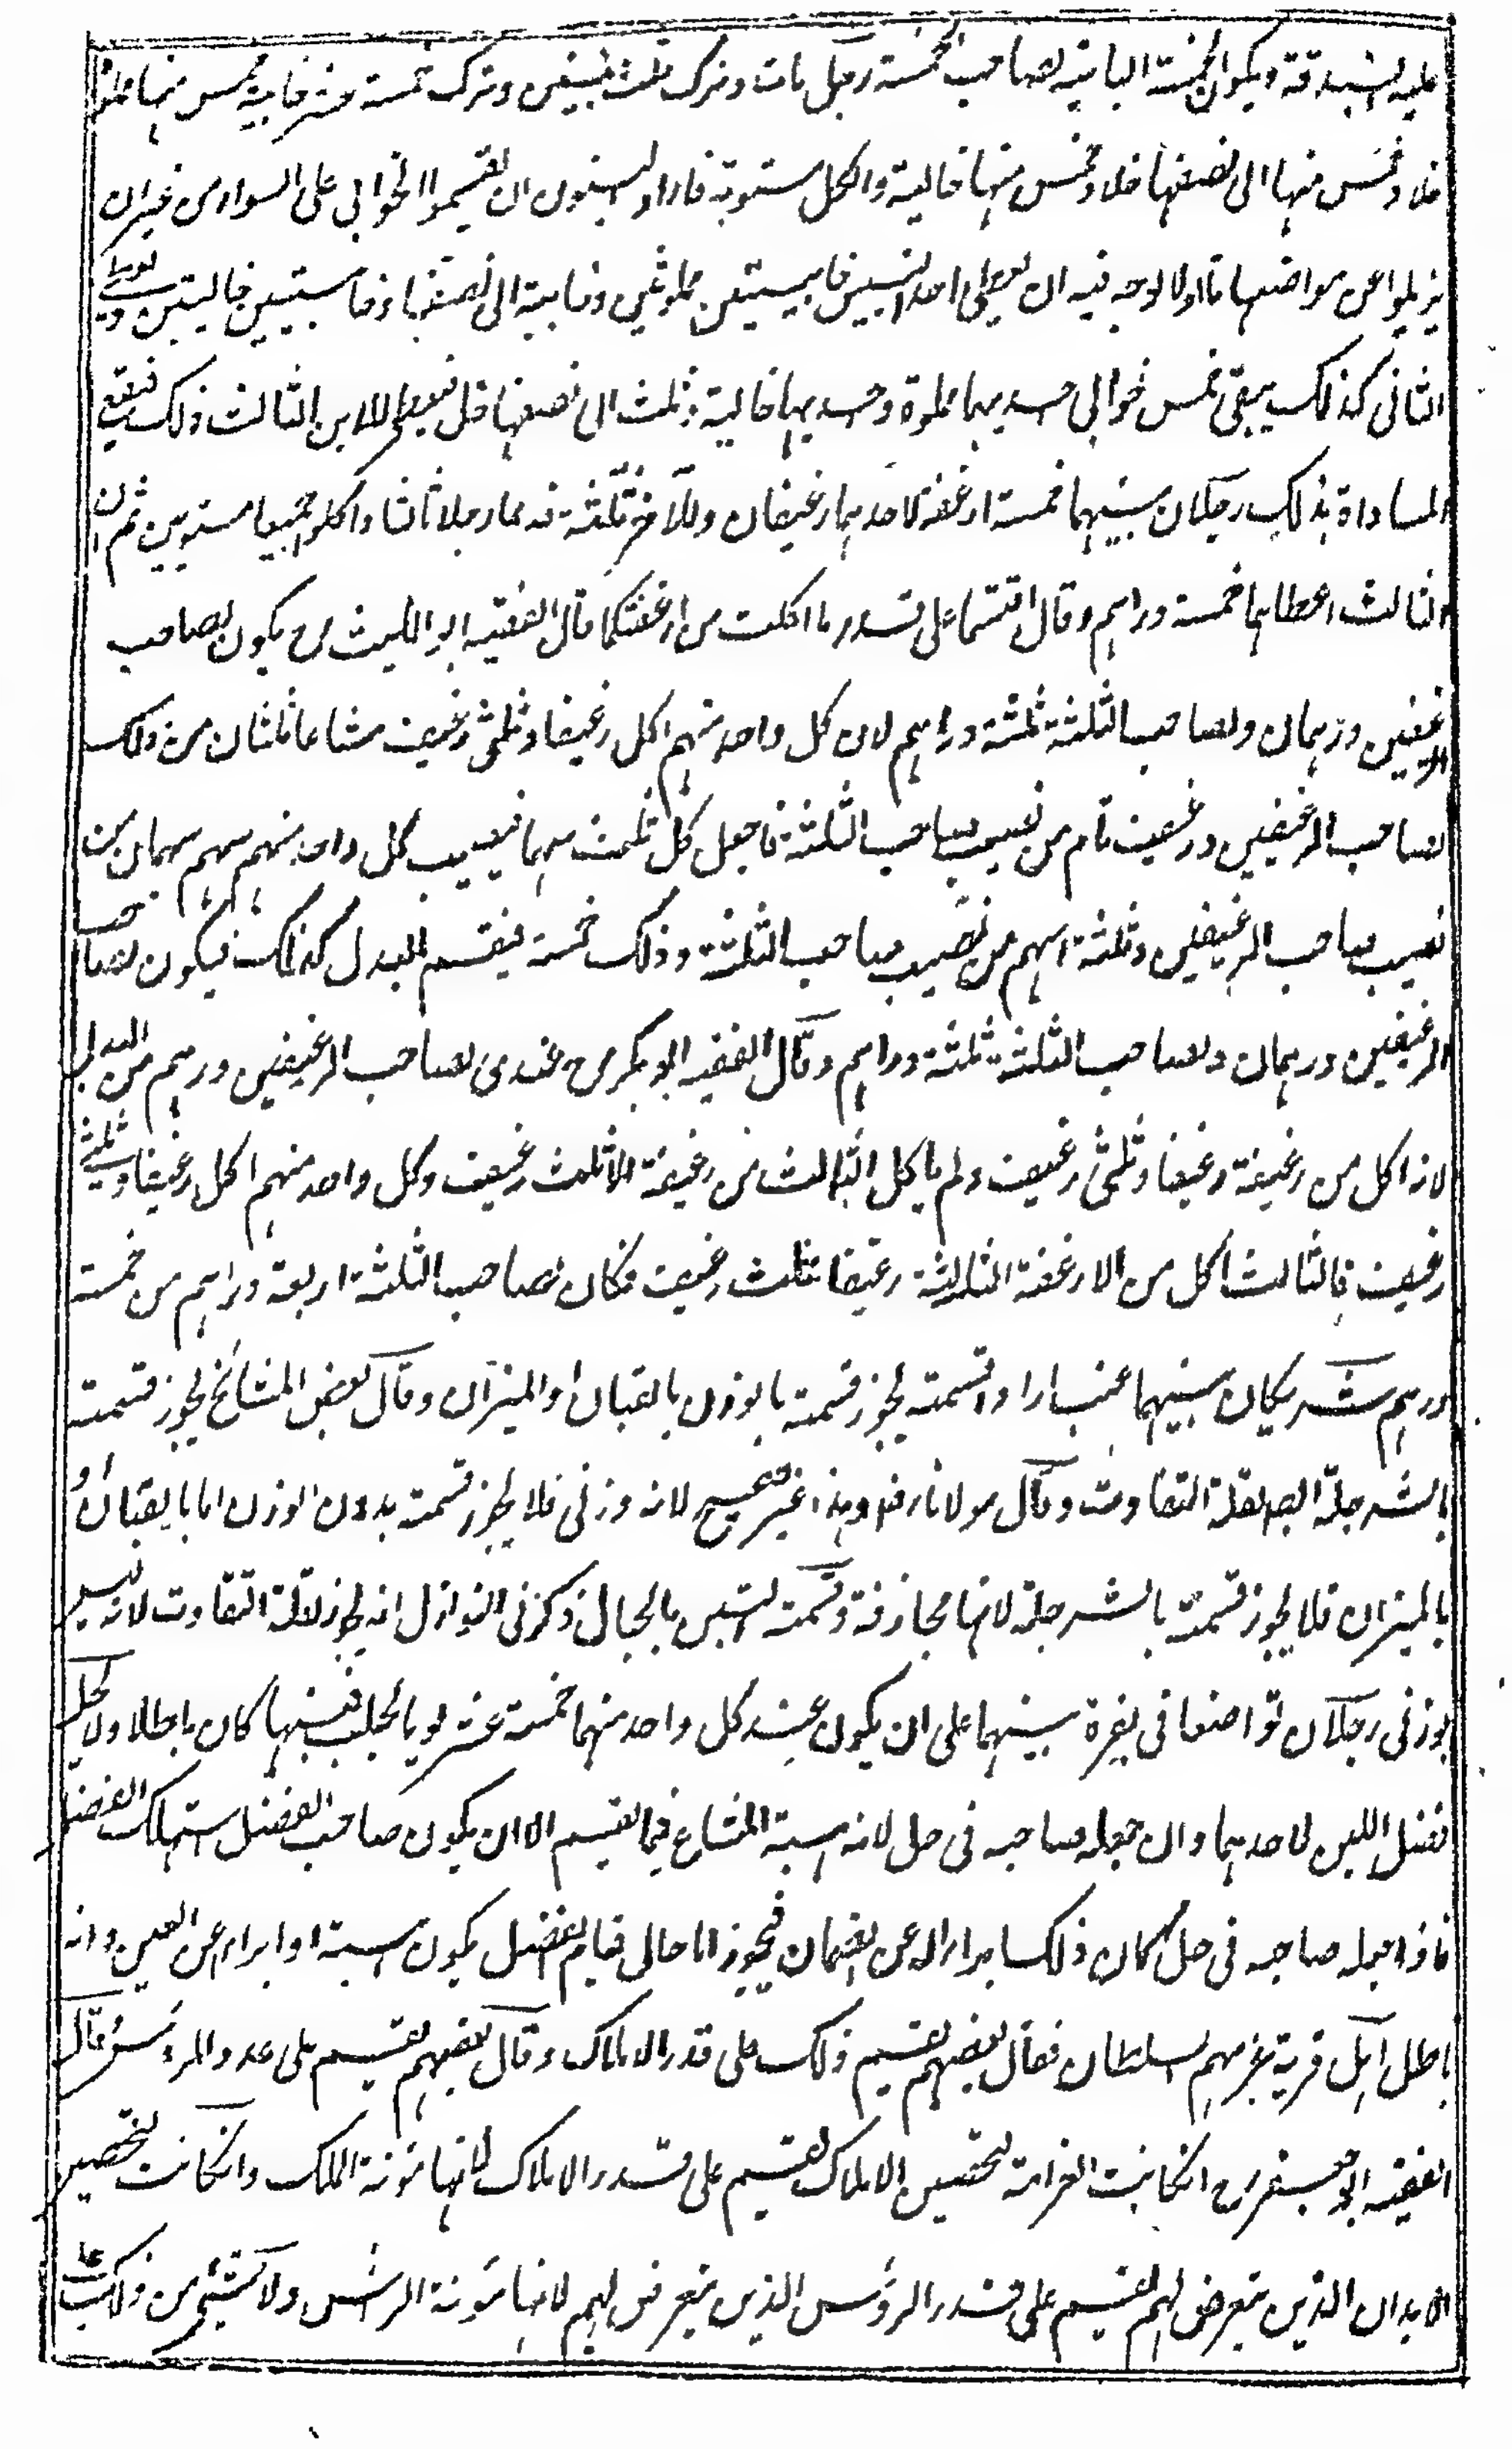 عليه الصدقة ويكون الخمسة الباقية لصاحب الخمسة رجل مات وترك ثلث بنين وترك خمسة عشر خابية خمس منها مملوة
خلا وخمس منها الى نصفها خلا وخمس منها خالية والكل مستوية فاراد البنون ان يقسموا الخوابي على السواء من غير ان
يزيلوا عن مواضعها قالوا الوجه فيه ان يعطى احد البنين خابيتين مملوئين وخابية الى نصفها وخابيتين خاليتين ويعطى
الثانى كذلك يبقى خمس خوابي احديهما مملوة واحديها خالية وثلث الى نصفها خل فيعطى للابن الثالث ذلك فيقع
المساواة بذلك رجلان بينهما خمسة ارغفة لاحدهما رغيفان وللآخر ثلثة فدعوا رجلا ثالثا واكلوا جميعا مستويين ثم ان
الثالث اعطاهما خمسة دراهم وقال اقتسما على قدر ما اكلت من ارغفتكما قال الفقيه ابو الليث رح يكون لصاحب
الرغيفين درهمان ولصاحب الثلثة ثلثة دراهم لان كل واحد منهم اكل رغيفا وثلثى رغيف مشاعا ثلثان من ذلك
لصاحب الرغيفين ورغيف تام من نصيب صاحب الثلثة فاجعل كل ثلث سهما فيصيب كل واحد منهم سهم سهمان من
نصيب صاحب الرغيفين وثلثة اسهم من نصيب صاحب الثلثة وذلك خمسة فيقسم البدل كذلك فيكون لصاحب
الرغيفين درهمان ولصاحب الثلثة ثلثة دراهم وقال الفقيه ابو بكر رح عندى لصاحب الرغيفين درهم من البدل
لانه اكل من رغيفه رغيفا وثلثى رغيف ولم ياكل الثالث من رغيفه الا ثلث رغيف وكل واحد منهم اكل رغيفا وثلثى
رغيف فالثالث اكل من الارغفة الثلثة رغيفا وثلث رغيف فكان لصاحب الثلثة اربعة دراهم من خمسة
دراهم شريكان بينهما عنب ارادا قسمته يجوز قسمته بالوزن بالقبان او الميزان وقال بعض المشائخ يجوز قسمته
بالشرجلة ايضا لقلة التفاوت وقال مولانا رض وهذا غير صحيح لانه وزنى فلا يجوز قسمته بدون الوزن اما بالقبان او
بالميزان فلا يجوز قسمته بالشرجلة لانها مجازفة وقسمة التبن بالحبال ذكر فى النوازل انه يجوز لقلة التفاوت لانه ليس
بوزنى رجلان تواضعا فى بقرة بينهما على ان يكون عند كل واحد منهما خمسة عشر يوما يحلب لبنها كان باطلا ولا يحل
فضل اللبن لاحدهما وان جعله صاحبه فى حل لانه هبة المشاع فيما يقسم الا ان يكون صاحب الفضل استهلك الفضل
فاذا جعله صاحبه فى حل كان ذلك ابراء له عن الضمان فيجوز اما حال قيام الفضل يكون هبة او ابراء عن العين وانه
باطل اهل قرية غرمهم السلطان فقال بعضهم يقسم ذلك على قدر الاملاك وقال بعضهم يقسم على عدد الرؤس وقال
الفقيه ابو جعفر رح ان كانت الغرامة لتحصين الاملاك يقسم على قدر الاملاك لانها مؤنة الملك وان كانت لتحصين
الابدان الذين يتعرض لهم يقسم على قدر الرؤس الذين يتعرض لهم لانها مؤنة الرأس ولا شئ من ذلك على